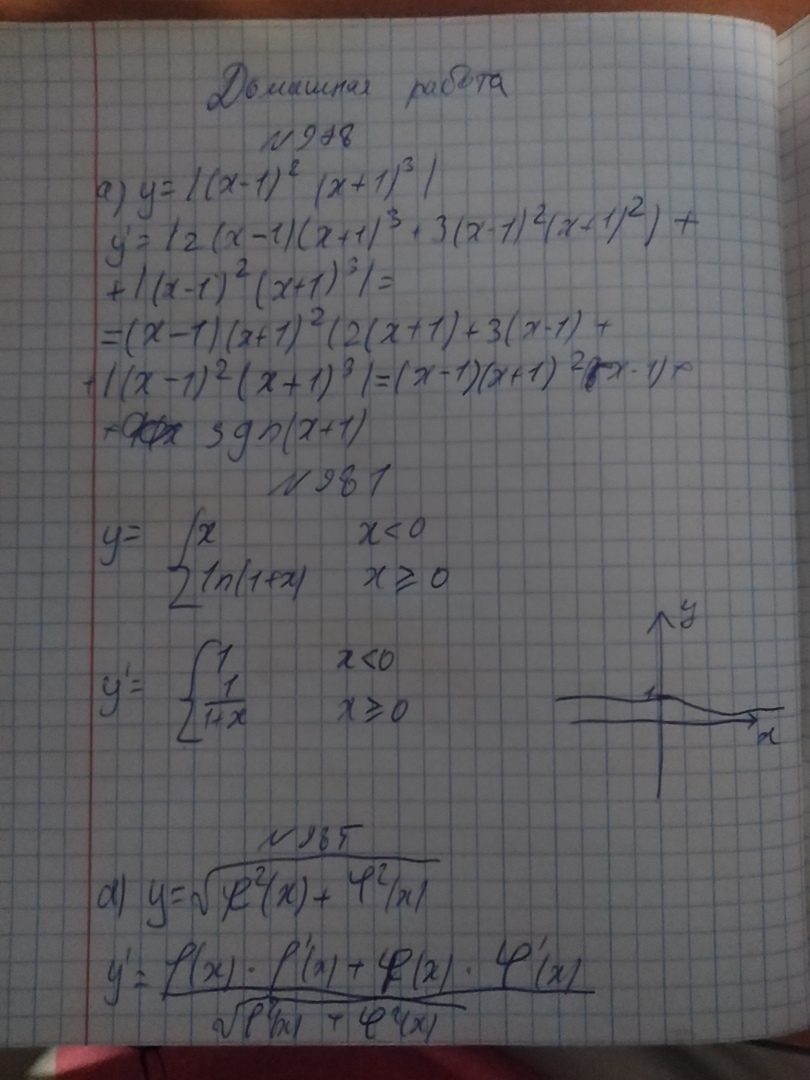 Домашная работа
№ 978
а) y = |(x-1)² (x+1)³|
y' = |2(x-1)(x+1)³ + 3(x-1)²(x+1)²) +
+ |(x-1)² (x+1)³| =
= (x-1)(x+1)² (2(x+1) + 3(x-1) +
+ |(x-1)² (x+1)³| = (x-1)(x+1)² (5x-1) +
sgn(x+1)
№ 981
y = { x x < 0
ln(1+x) x ≥ 0
y' = { 1 x < 0
1/(1+x) x ≥ 0
y
1
x
№ 985
а) y = √(φ²(x) + ψ²(x)
y' = φ(x) · φ'(x) + ψ(x) · ψ'(x)
√φ²(x) + ψ²(x)